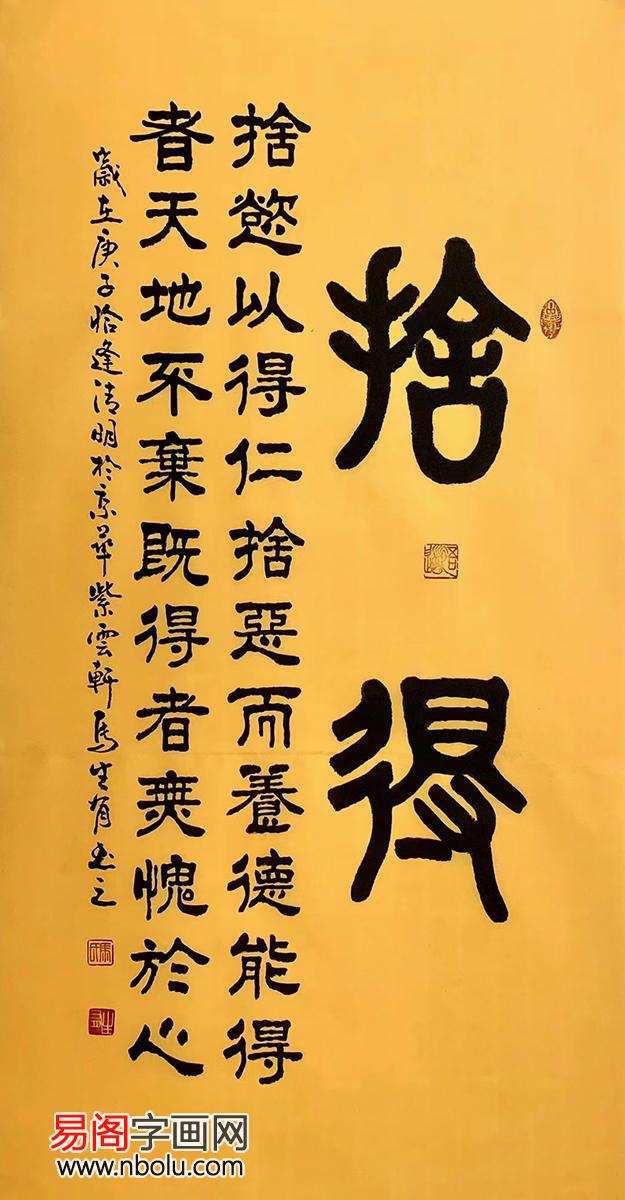 捨得
捨慾以得仁捨惡而養德能得
者天地不棄既得者無愧於心
歲在庚子恰逢清明於京華紫雲軒馬生有書之
易阁字画网
www.nbolu.com